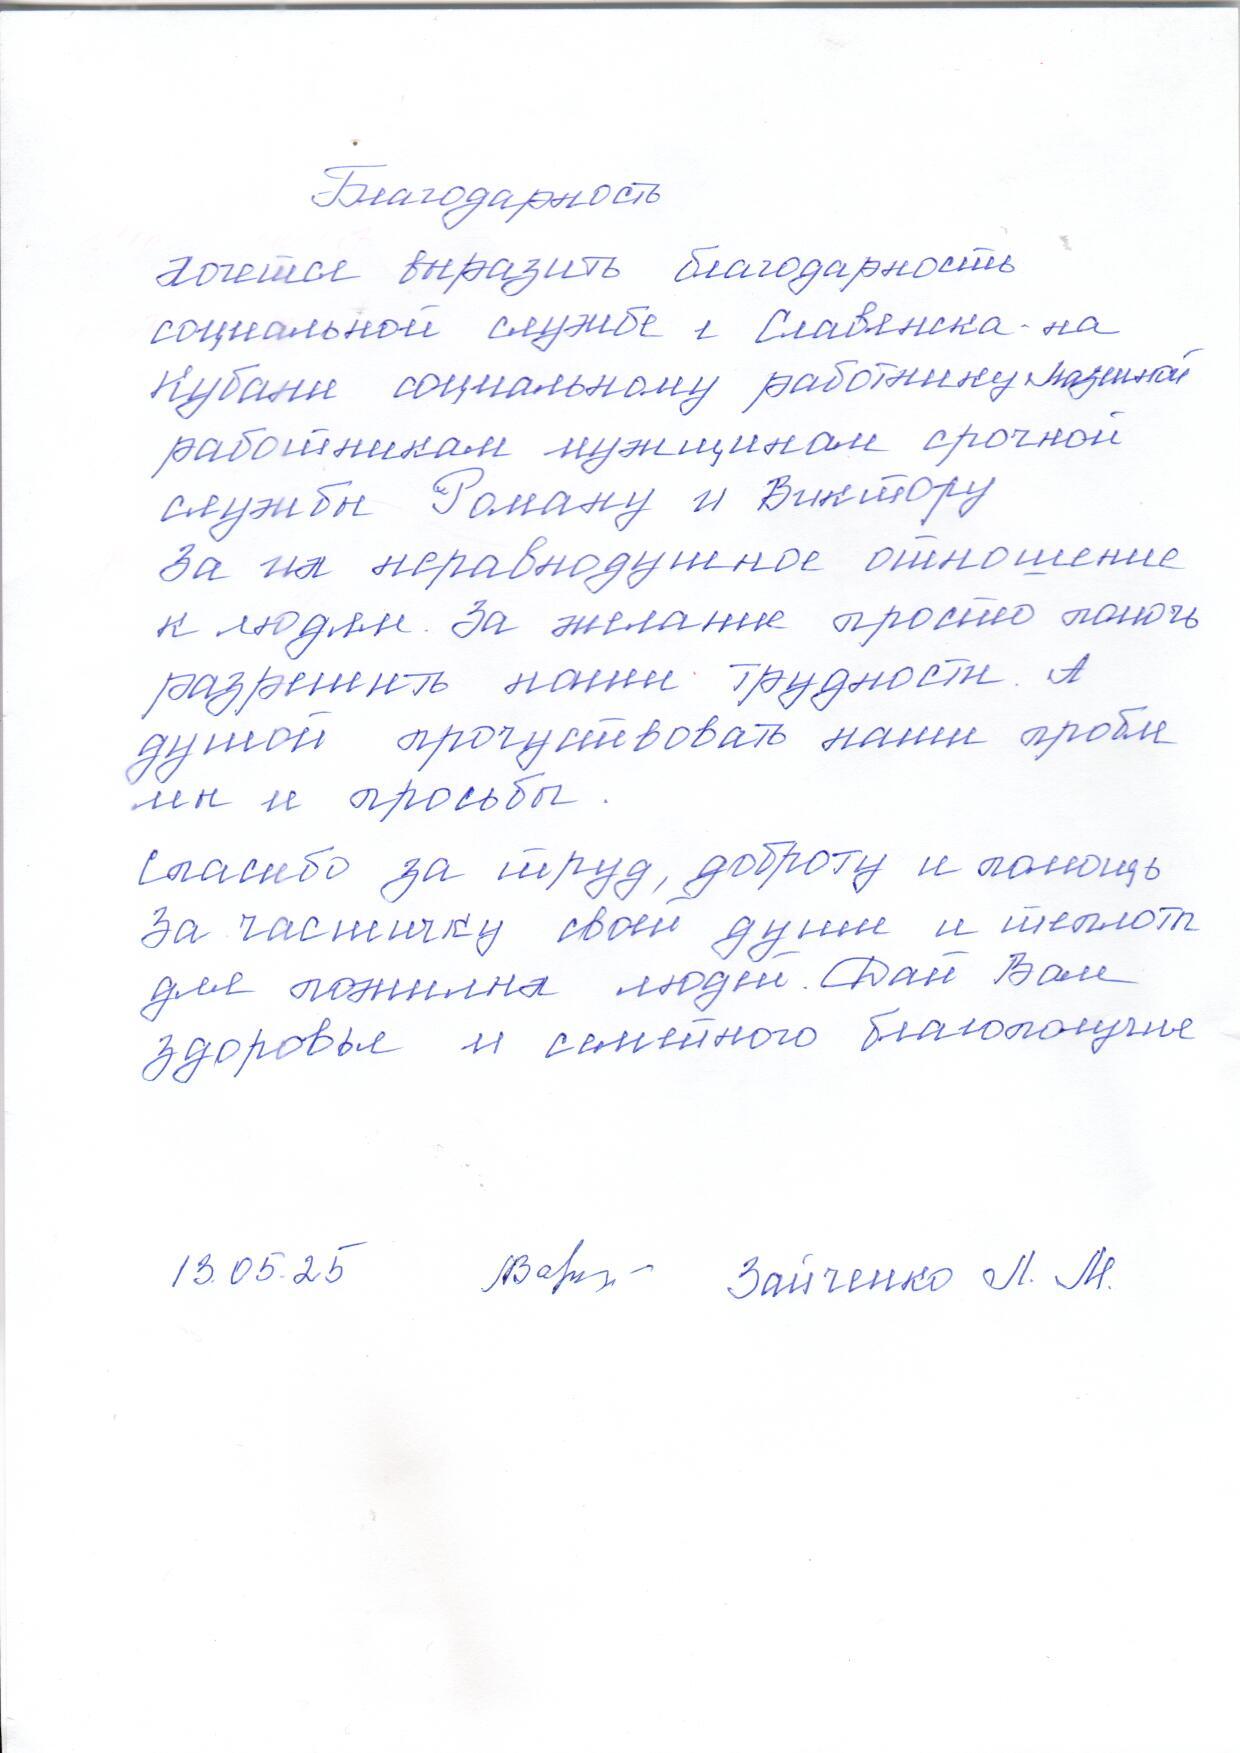 Благодарность
Хочется выразить благодарность
социальной службе г Славянска-на
Кубани социальному работнику
работникам мужчинам срочной
службы Роману и Виктору
За их неравнодушное отношение
к людям. За желание просто помочь
разрешить наши трудности. А
душой прочуствовать наши пробле
мы и просьбы.
Спасибо за труд, доброту и помощь
За частичку своей души и теплоты
для пожилых людей. Дай Вам
здоровья и семейного благополучие
13.05.25 Зайченко Л. М.